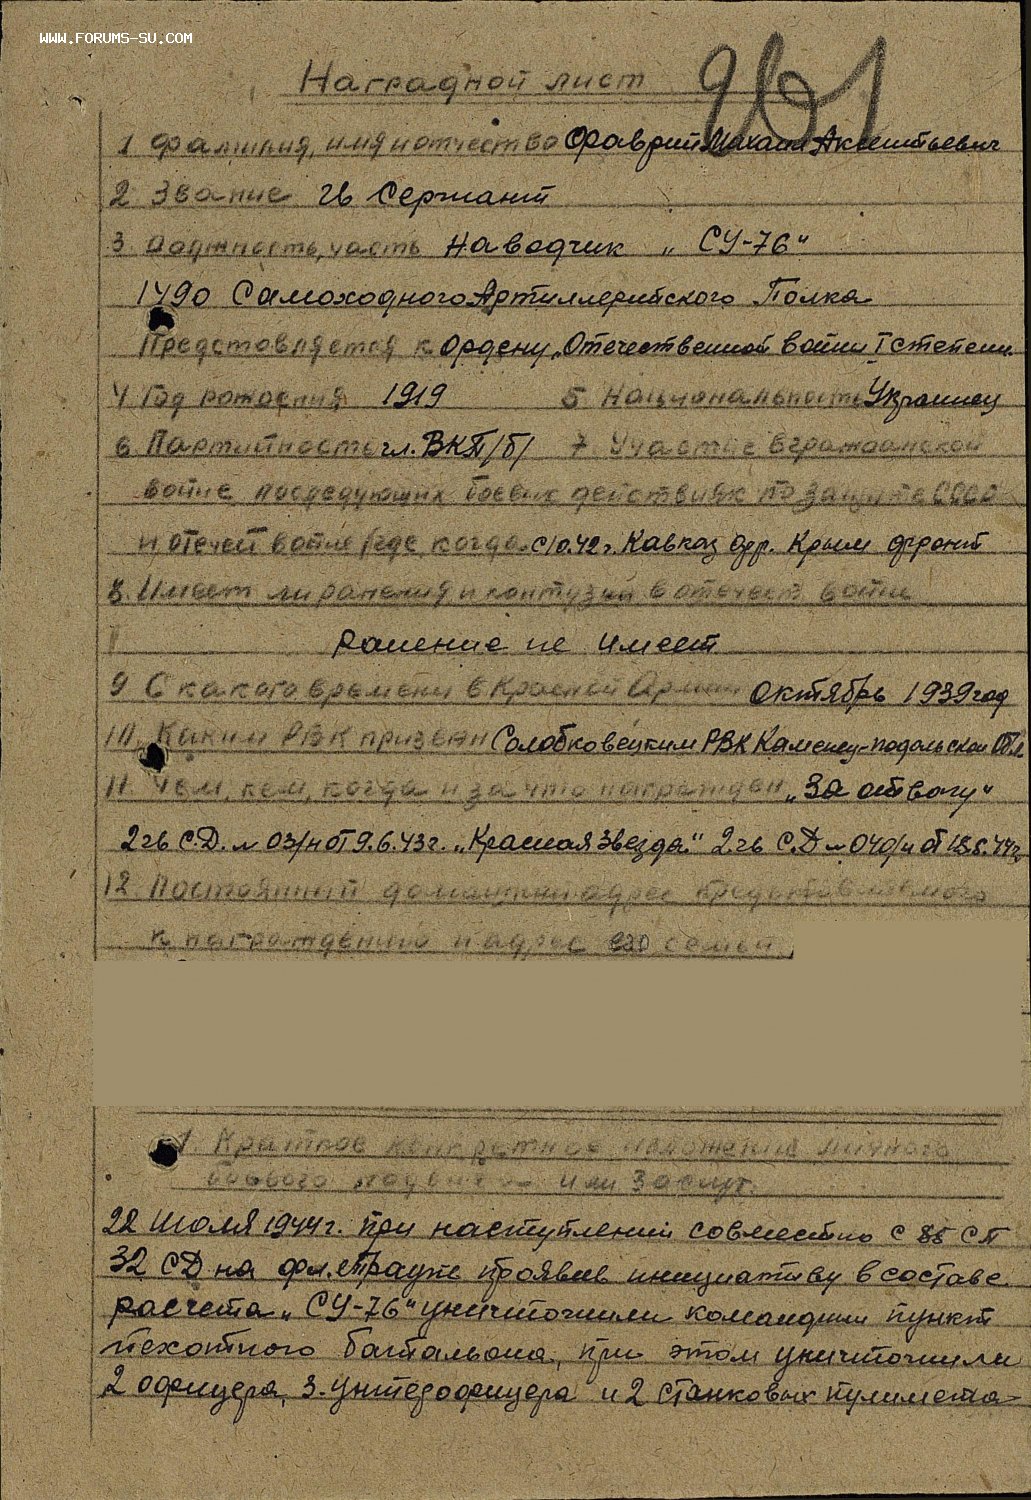 WWW.FORUMS-SU.COM
Наградной лист
261
1 Фамилия, имя и отчество Фаврий Михаил Аксентьевич
2 Звание гв Сержант
3 должность, часть Наводчик „СУ-76"
1490 Самоходного Артиллерийского Полка
Представляется к Ордену „Отечественной войны I степени
4 Год рождения 1919 5 Национальность Украинец
6 Партийность чл. ВКП/б/ 7 Участие в гражданской
войне последующих боевых действиях по защите СССР
и отечест войне /где, когда с 10.42 г. Кавказ фр. Крым фронт
8. Имеет ли ранения и контузии в отечест войне
ранение не имеет
9 С какого времени в Красной Армии октябрь 1939 год
10. Каким РВК призван Солобковецким РВК Каменец-подольской Обл.
11 Чем, кем, когда и за что награжден „За отвагу"
2 гв С.Д. № 03/н от 9.6.43 г. „Красная Звезда." 2 гв С.Д № 040/н от 18.5.44 г.
12 Постоянный домашний адрес представляемого
к награждению и адрес его семьи
1. Краткое конкретное изложение личного
боевого подвига или заслуг.
22 Июля 1944 г. при наступлении совместно с 85 СП
32 СД на проявив инициативу в составе
расчета „СУ-76" уничтожили командный пункт
пехотного батальона, при этом уничтожили
2 офицера, 3. унтерофицера и 2 станковых пулимета